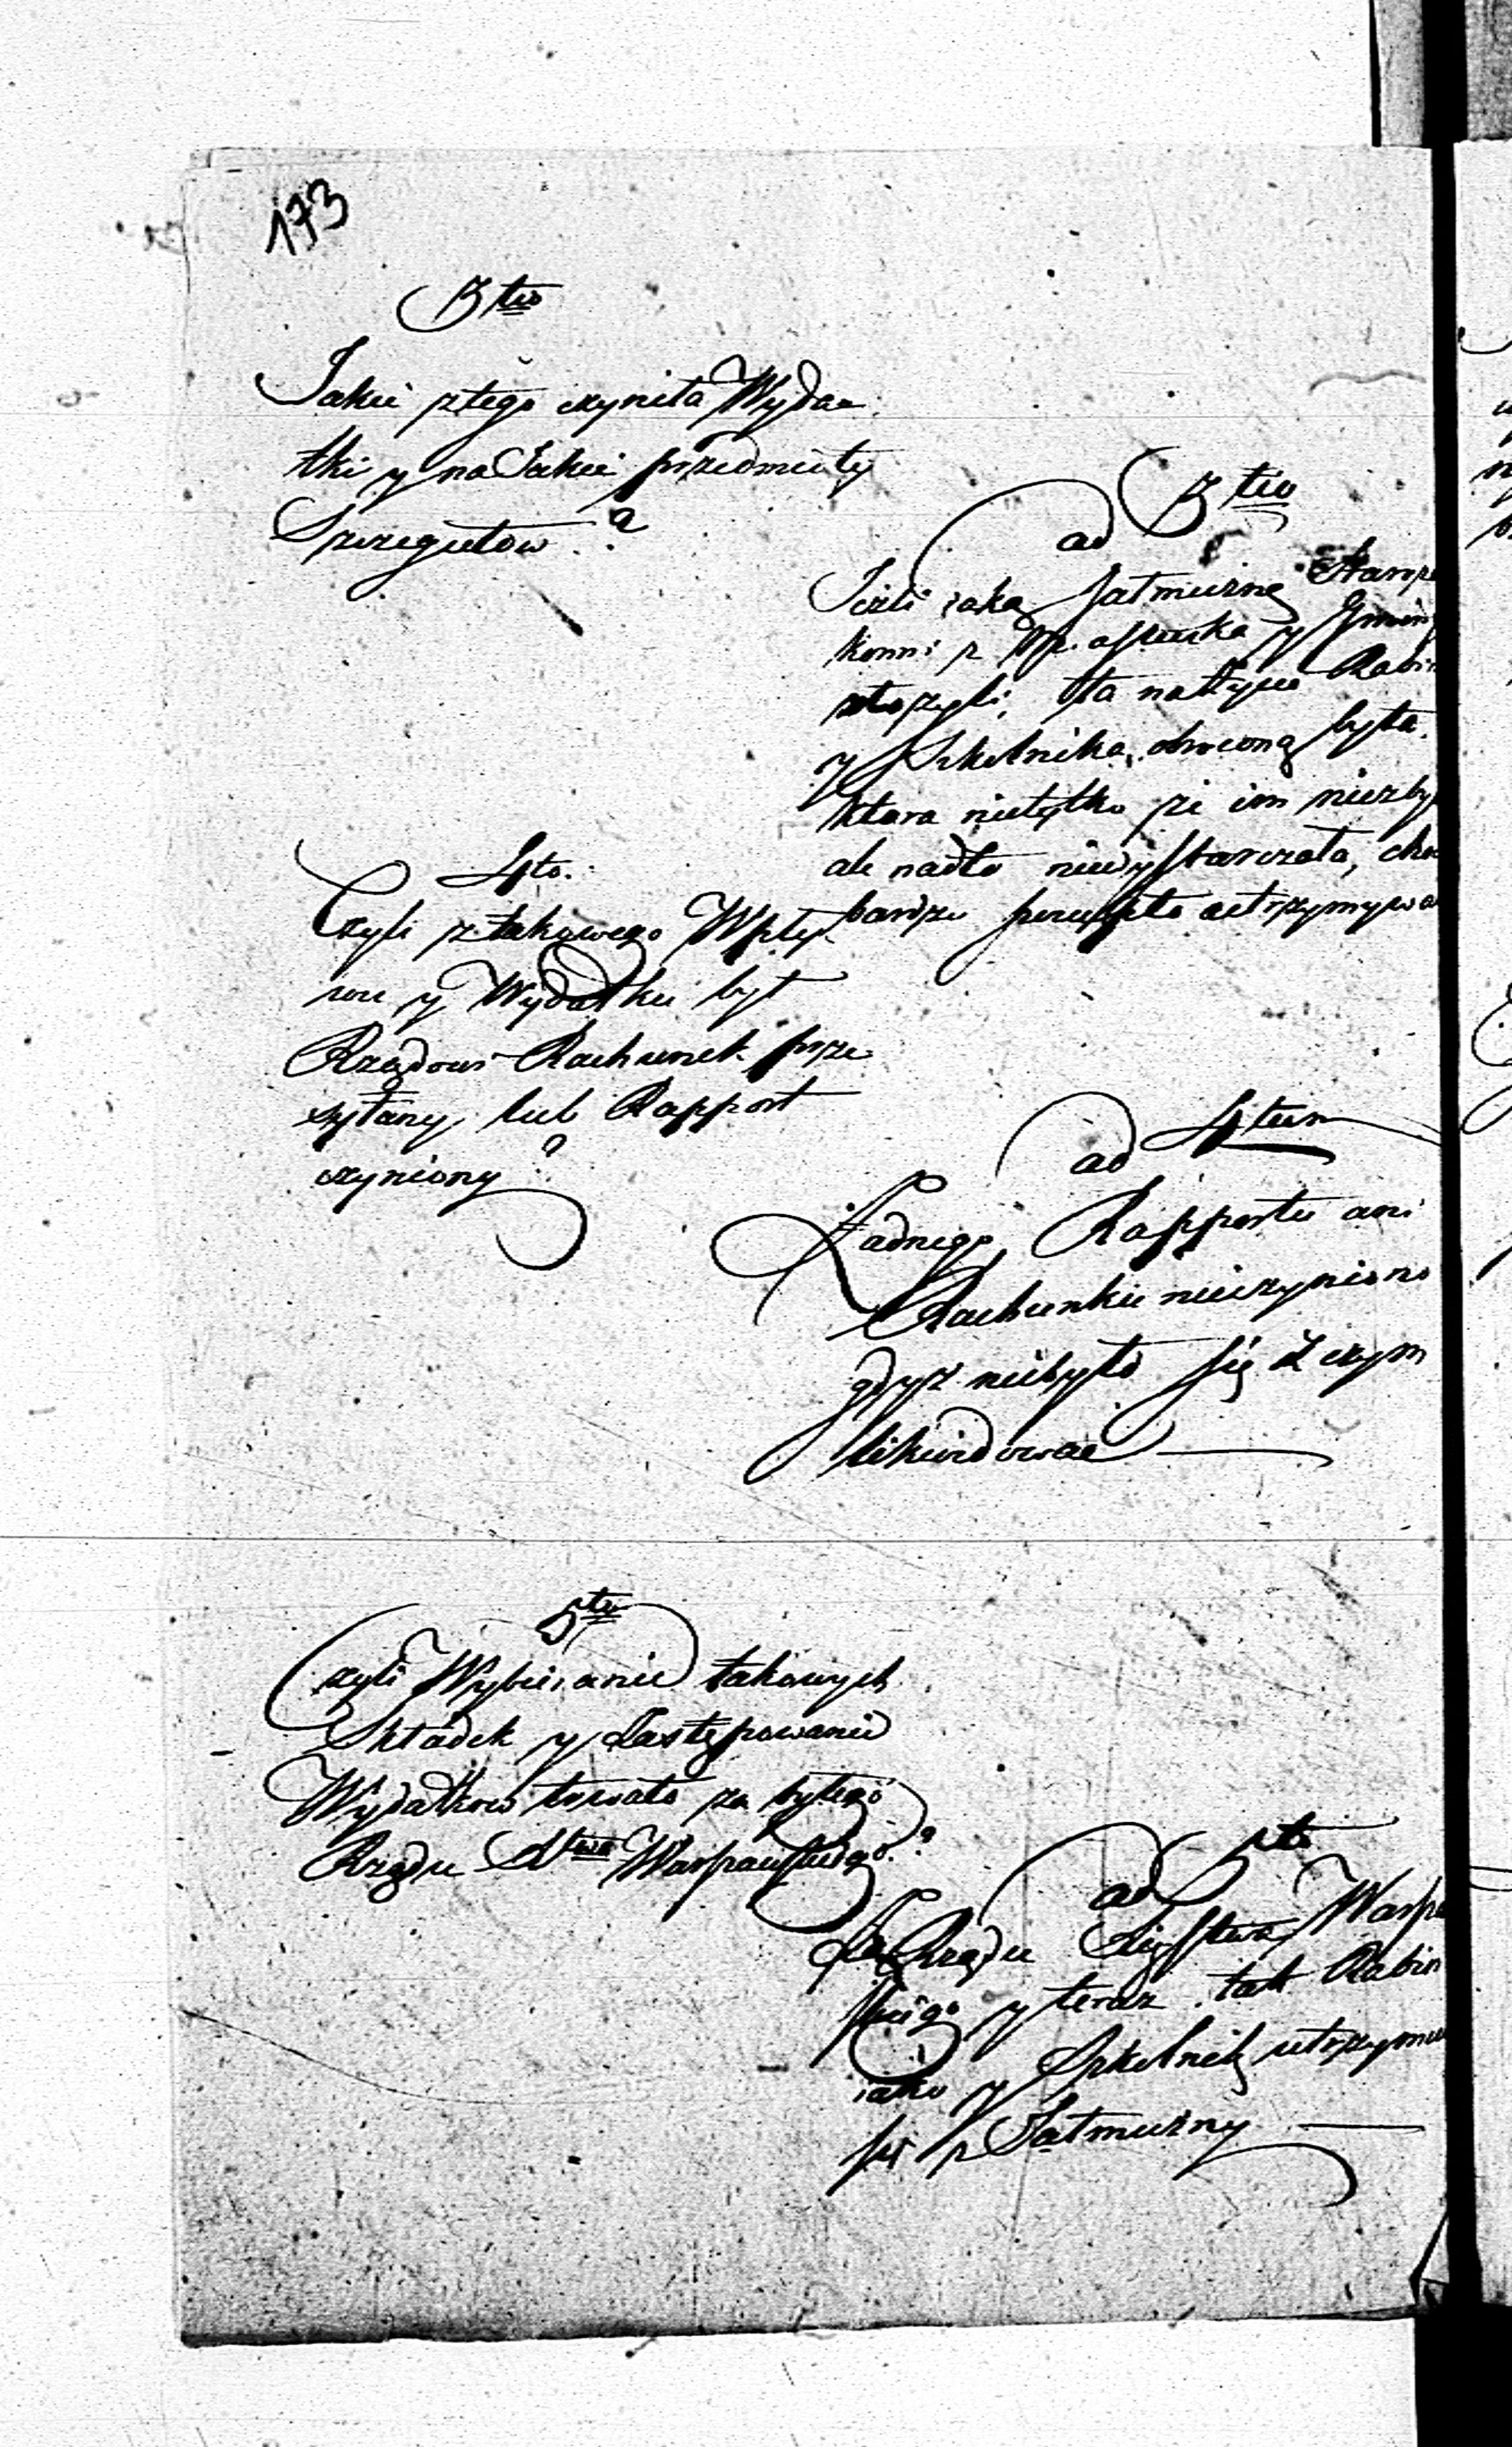 173
3tio
Jakie z tego czyniła Wydat
tki y na Jakie przedmioty
Szczegułow?
ad 3tio
Jeżli iaką Jałmużnę Starza
konni z y Gmin
złożyli, ta na życie Rabin
y Szkolnika obroconą była,
ktora nietylko że im niezby
ale nadto niewystarczała, cho
bardzo utrzymywa
4to.
Czyli z takowego Wpły
wu y Wydatku był
Rządowi Rachunek prze
syłany lub Rapport
czyniony?
ad 4tum
Żadnego Rapportu ani
Rachunku nieczyniono
gdyż niebyło się z czym
likwidować
5to
Czyli Wybieranie takowych
Składek y Zastępowanie
Wydatkow trwało za byłego
Rządu Xtwa Warszawskiego?
ad 5to
Za Rządu Xięstwa Warsza
skiego y teraz tak Rabin
iako y Szkolnik utrzymu
się z Jałmużny